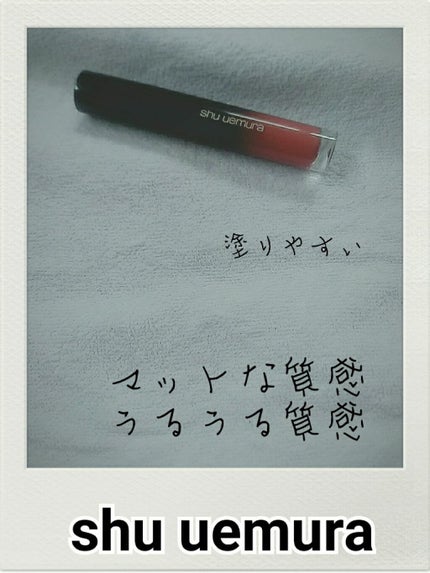 shu uemura
塗りやすい
マットな質感
うるうる質感
shu uemura